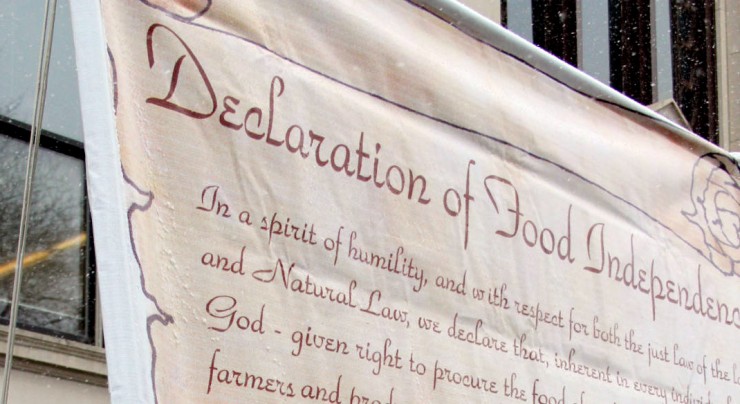 Declaration of Food Independenc
In a spirit of humility, and with respect for both the just Law of the
and Natural Law, we declare that, inherent in every
God - given right to procure the food
farmers and